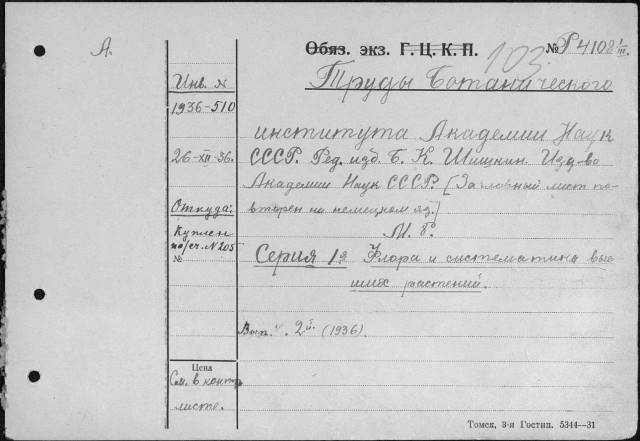 А.
Обяз. экз. Г. Ц. К. П.
103.
№ Р4108 1/III
Инв. №
1936-510
Труды Ботанического
института Академии Наук
26-XII-36.
СССР. Ред. изд. Б. К. Шишкин. Изд-во
Академии Наук СССР. [Заглавный лист по-
Откуда:
вторен на немецком яз.]
Куплен
М. Г.
по/сч. N 205
№
Серия 1я Флора и систематика выс
ших растений.
Вып. 2й. (1936).
Цена
См. в контр
листе.
Томск, 3-я Гостип. 5344—31